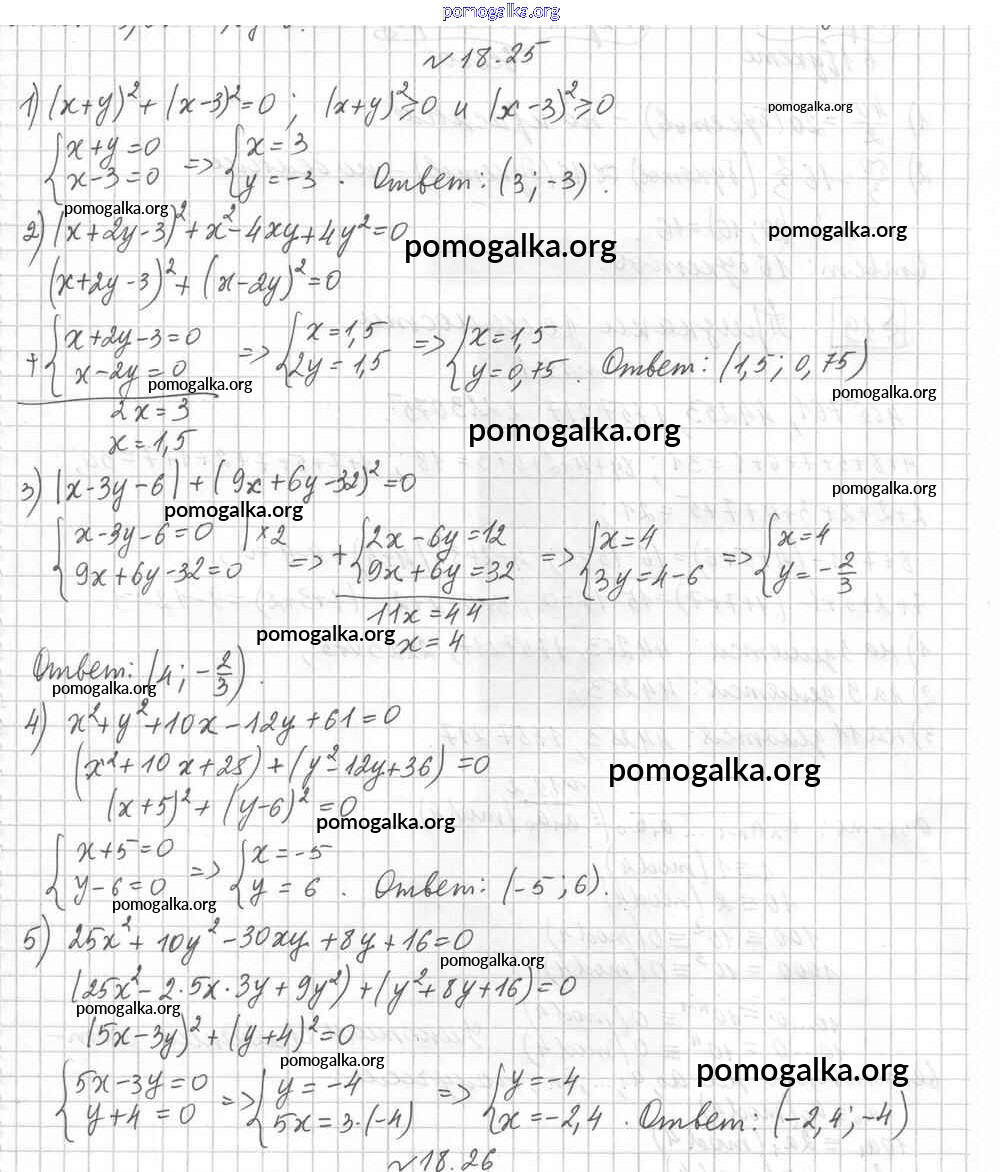 pomogalka.org
№ 18.25
1) (x+y)² + (x-3)² = 0 ; (x+y)² ≥ 0 и (x-3)² ≥ 0
pomogalka.org
{ x+y=0 => { x=3
{ x-3=0 { y=-3 . Ответ: (3; -3).
pomogalka.org
2) (x+2y-3)² + x² - 4xy + 4y² = 0
pomogalka.org
pomogalka.org
(x+2y-3)² + (x-2y)² = 0
+ { x+2y-3=0 => { x=1,5 => { x=1,5
{ x-2y=0 { 2y=1,5 { y=0,75 . Ответ: (1,5; 0,75)
pomogalka.org
pomogalka.org
2x=3
x=1,5
pomogalka.org
3) |x-3y-6| + (9x+6y-32)² = 0
pomogalka.org
pomogalka.org
{ x-3y-6=0 | ×2 => + { 2x-6y=12 => { x=4 => { x=4
{ 9x+6y-32=0 { 9x+6y=32 { 3y=4-6 { y=-2/3
11x=44
x=4
pomogalka.org
Ответ: (4; -2/3).
pomogalka.org
4) x²+y²+10x-12y+61=0
(x²+10x+25)+(y²-12y+36)=0
pomogalka.org
(x+5)²+(y-6)²=0
pomogalka.org
{ x+5=0 => { x=-5
{ y-6=0 { y=6 . Ответ: (-5; 6).
pomogalka.org
5) 25x²+10y²-30xy+8y+16=0
pomogalka.org
(25x²-2·5x·3y+9y²)+(y²+8y+16)=0
pomogalka.org
(5x-3y)²+(y+4)²=0
pomogalka.org
pomogalka.org
{ 5x-3y=0 => { y=-4 => { y=-4
{ y+4=0 { 5x=3·(-4) { x=-2,4 . Ответ: (-2,4; -4)
№ 18.26